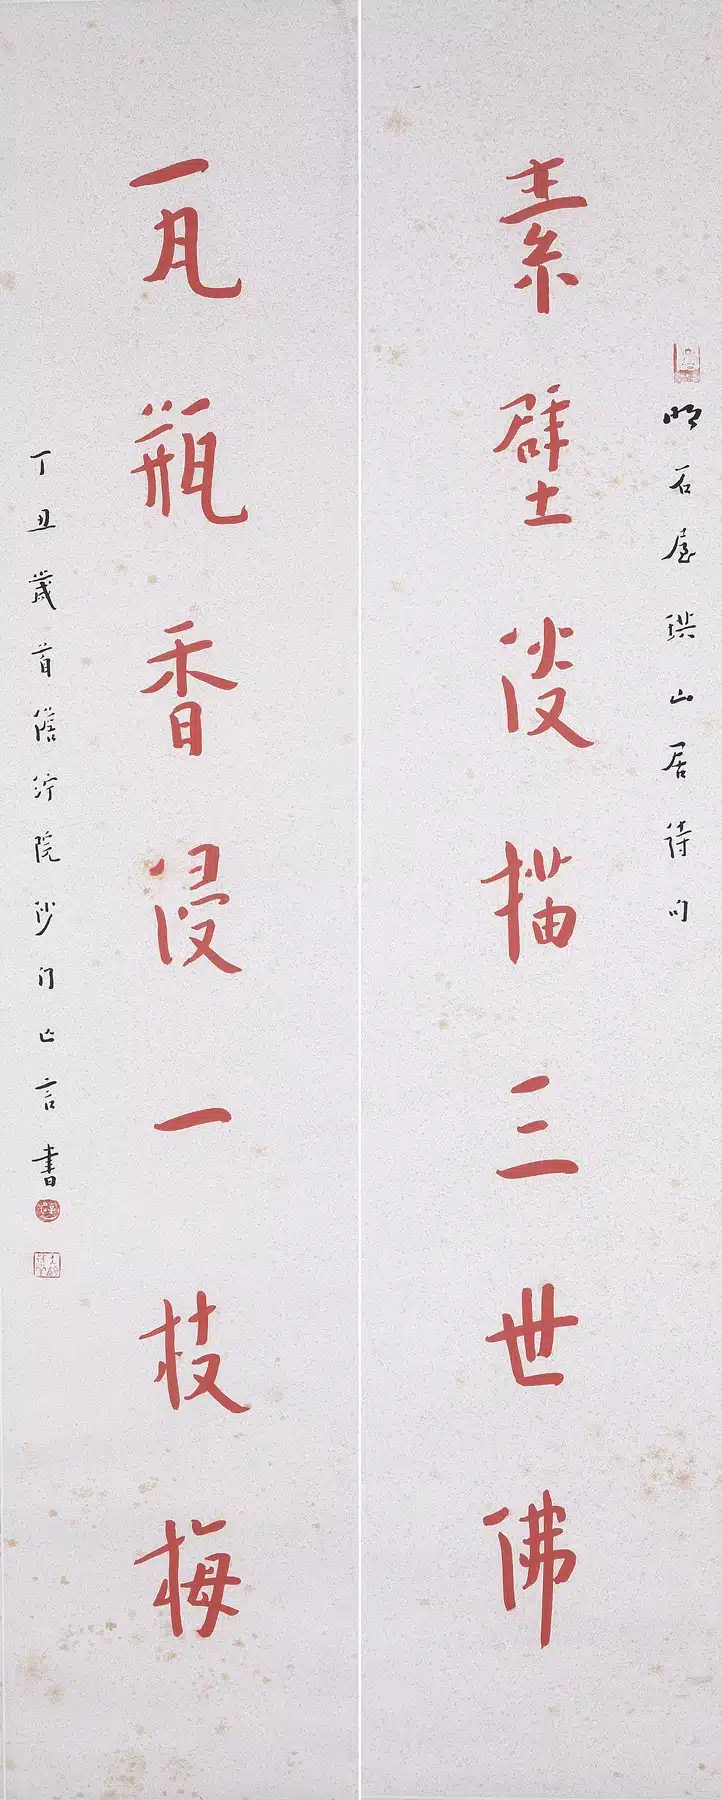 明石屋珙山居诗句
素壁淡描三世佛
瓦瓶香浸一枝梅
丁丑歲首薝𦶜院沙门亡言书